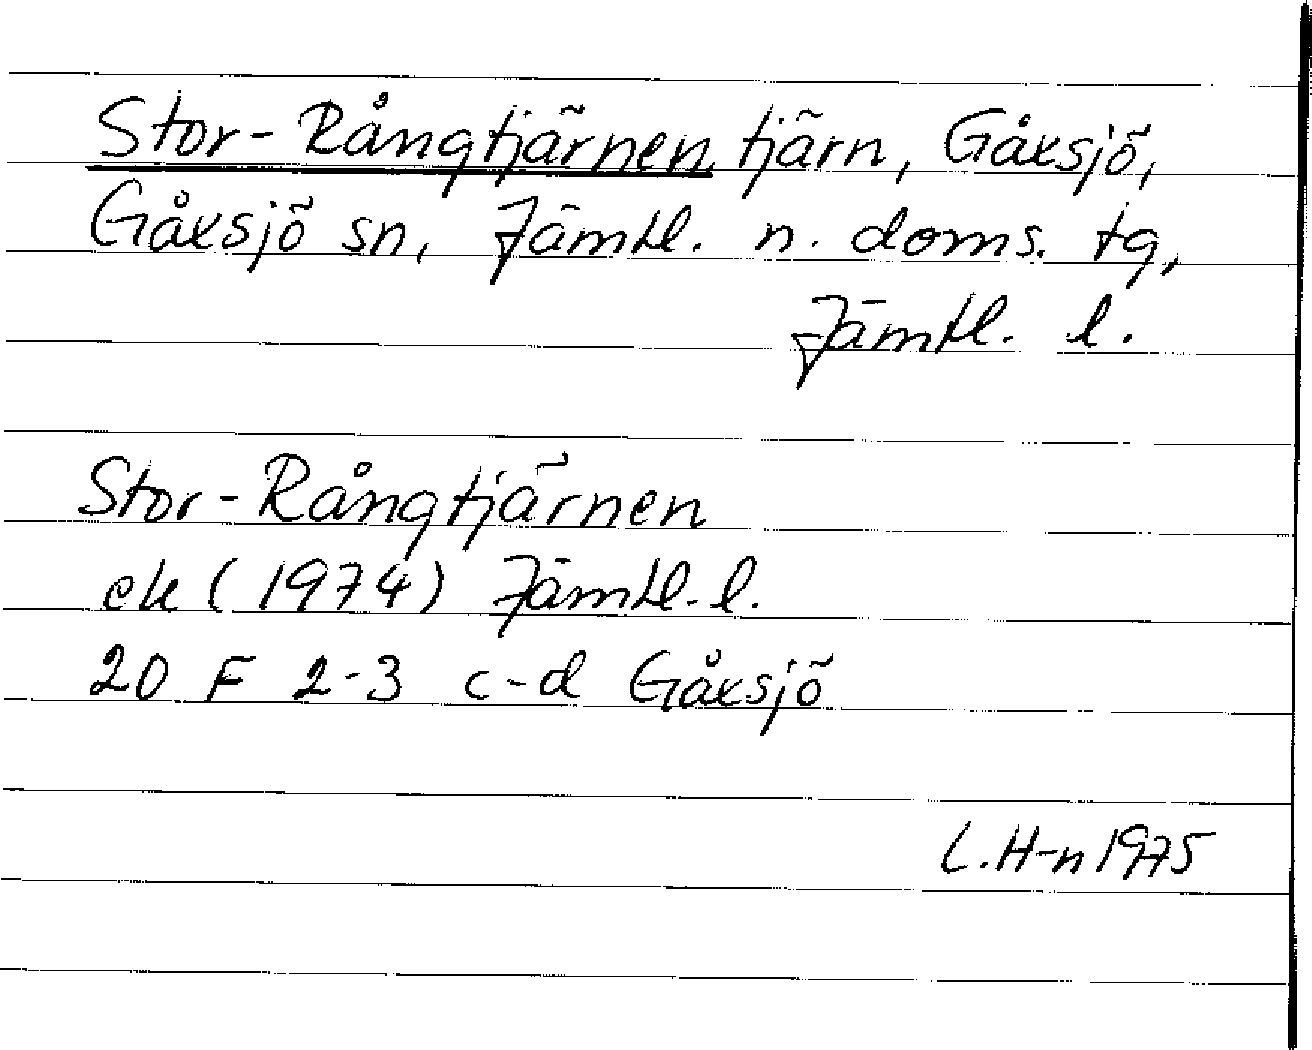 Stor-Rångtjärnen tjärn, Gåxsjö,
Gåxsjö sn, Jämtl. n. doms. tg,
Jämtl. l.
Stor-Rångtjärnen
ek (1974) Jämtl. l.
20 F 2-3 c-d Gåxsjö
L.H-n 1975